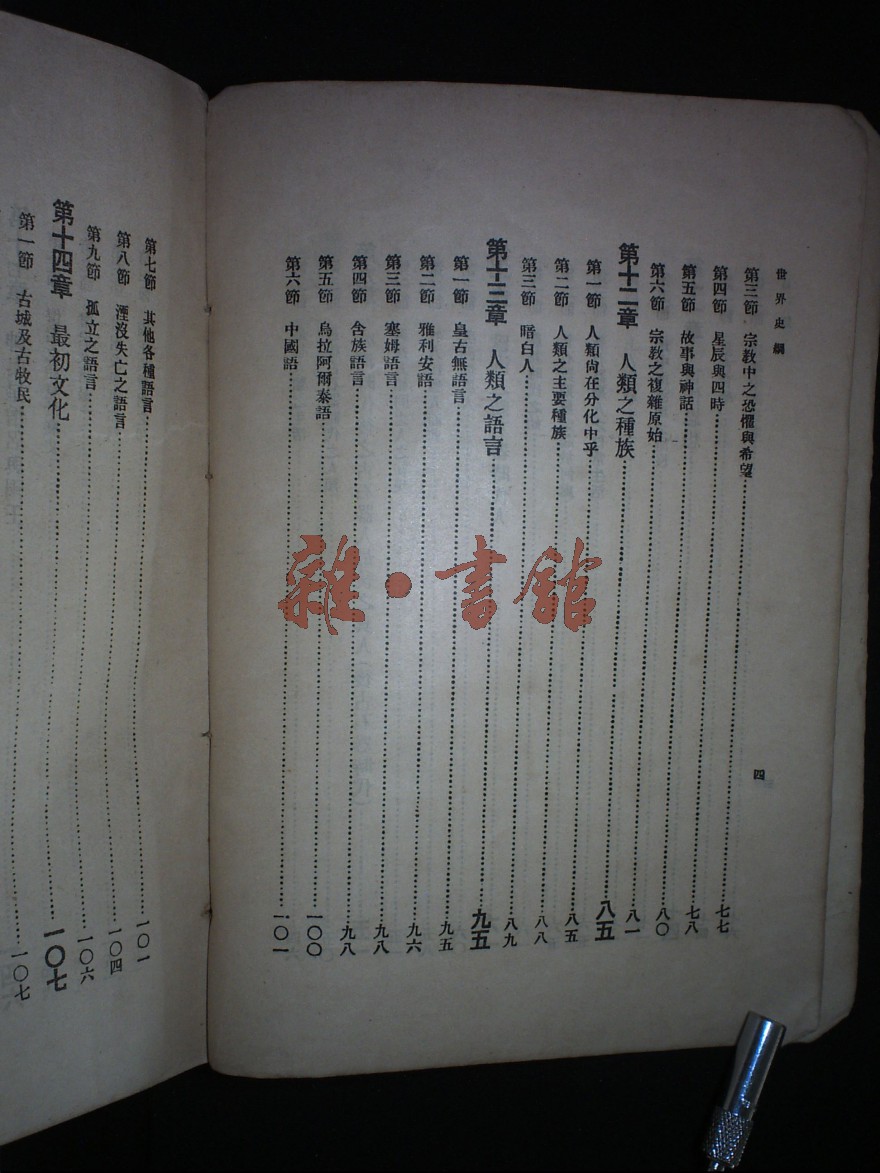 世界史綱
第三節 宗敎中之恐懼與希望……七七
第四節 星辰與四時……七八
第五節 故事與神話……八〇
第六節 宗敎之複雜原始……八一
第十二章 人類之種族……八五
第一節 人類尙在分化中乎……八五
第二節 人類之主要種族……八八
第三節 暗白人……八九
第十三章 人類之語言……九五
第一節 皇古無語言……九五
第二節 雅利安語……九六
第三節 塞姆語言……九八
第四節 含族語言……九八
第五節 烏拉阿爾泰語……一〇〇
第六節 中國語……一〇一
四
第七節 其他各種語言……一〇一
第八節 湮沒失亡之語言……一〇四
第九節 孤立之語言……一〇六
第十四章 最初文化……一〇七
第一節 古城及古牧民……一〇七
雜·書館